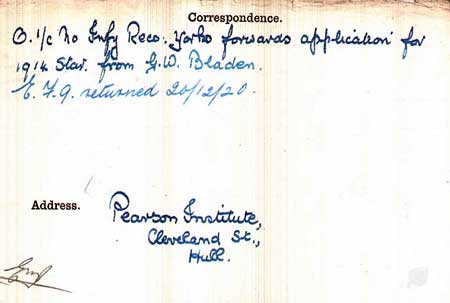 Correspondence.
O. i/c No Infy Reco. Yorks forwards application for
1914 Star. from G.W. Bladen.
E. F. 9. returned 20/12/20.
Address.
Pearson Institute,
Cleveland St.,
Hull.